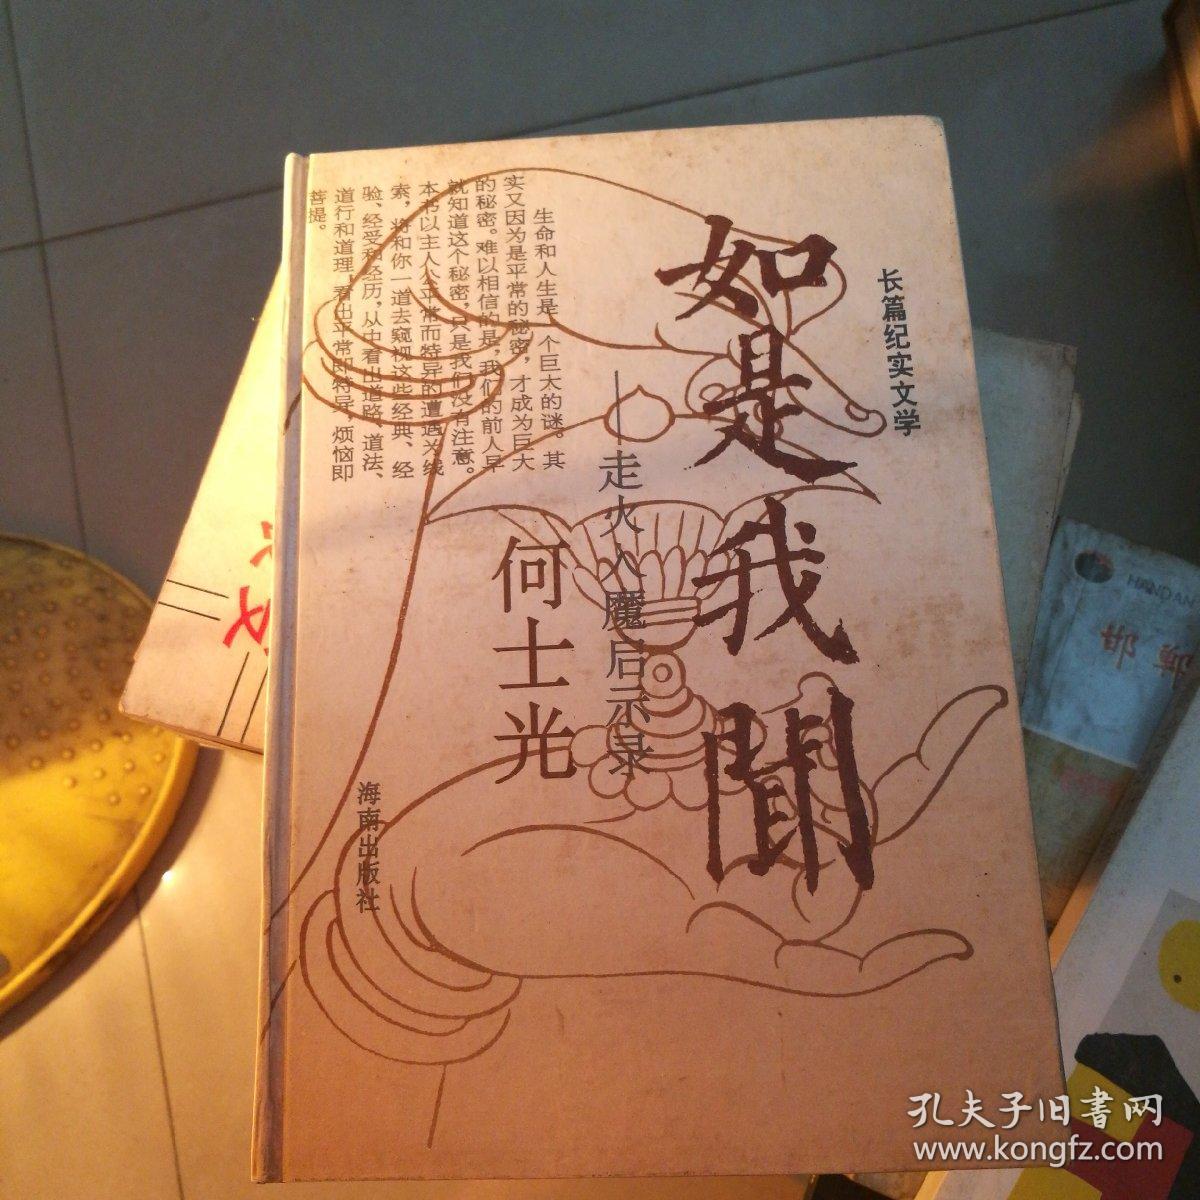 长篇纪实文学
如是我聞
——走火入魔启示录
何士光
生命和人生是一个巨大的谜。其
实又因为是平常的秘密，才成为巨大
的秘密。难以相信的是，我们的前人早
就知道这个秘密，只是我们没有注意。
本书以主人公平常而特异的遭遇为线
索，将和你一道去窥视这些经典、经
验、经受和经历，从中看出道路、道法、
道行和道理，看出平常即特异，烦恼即
菩提。
海南出版社
HANDAN
孔夫子旧書网
www.kongfz.com